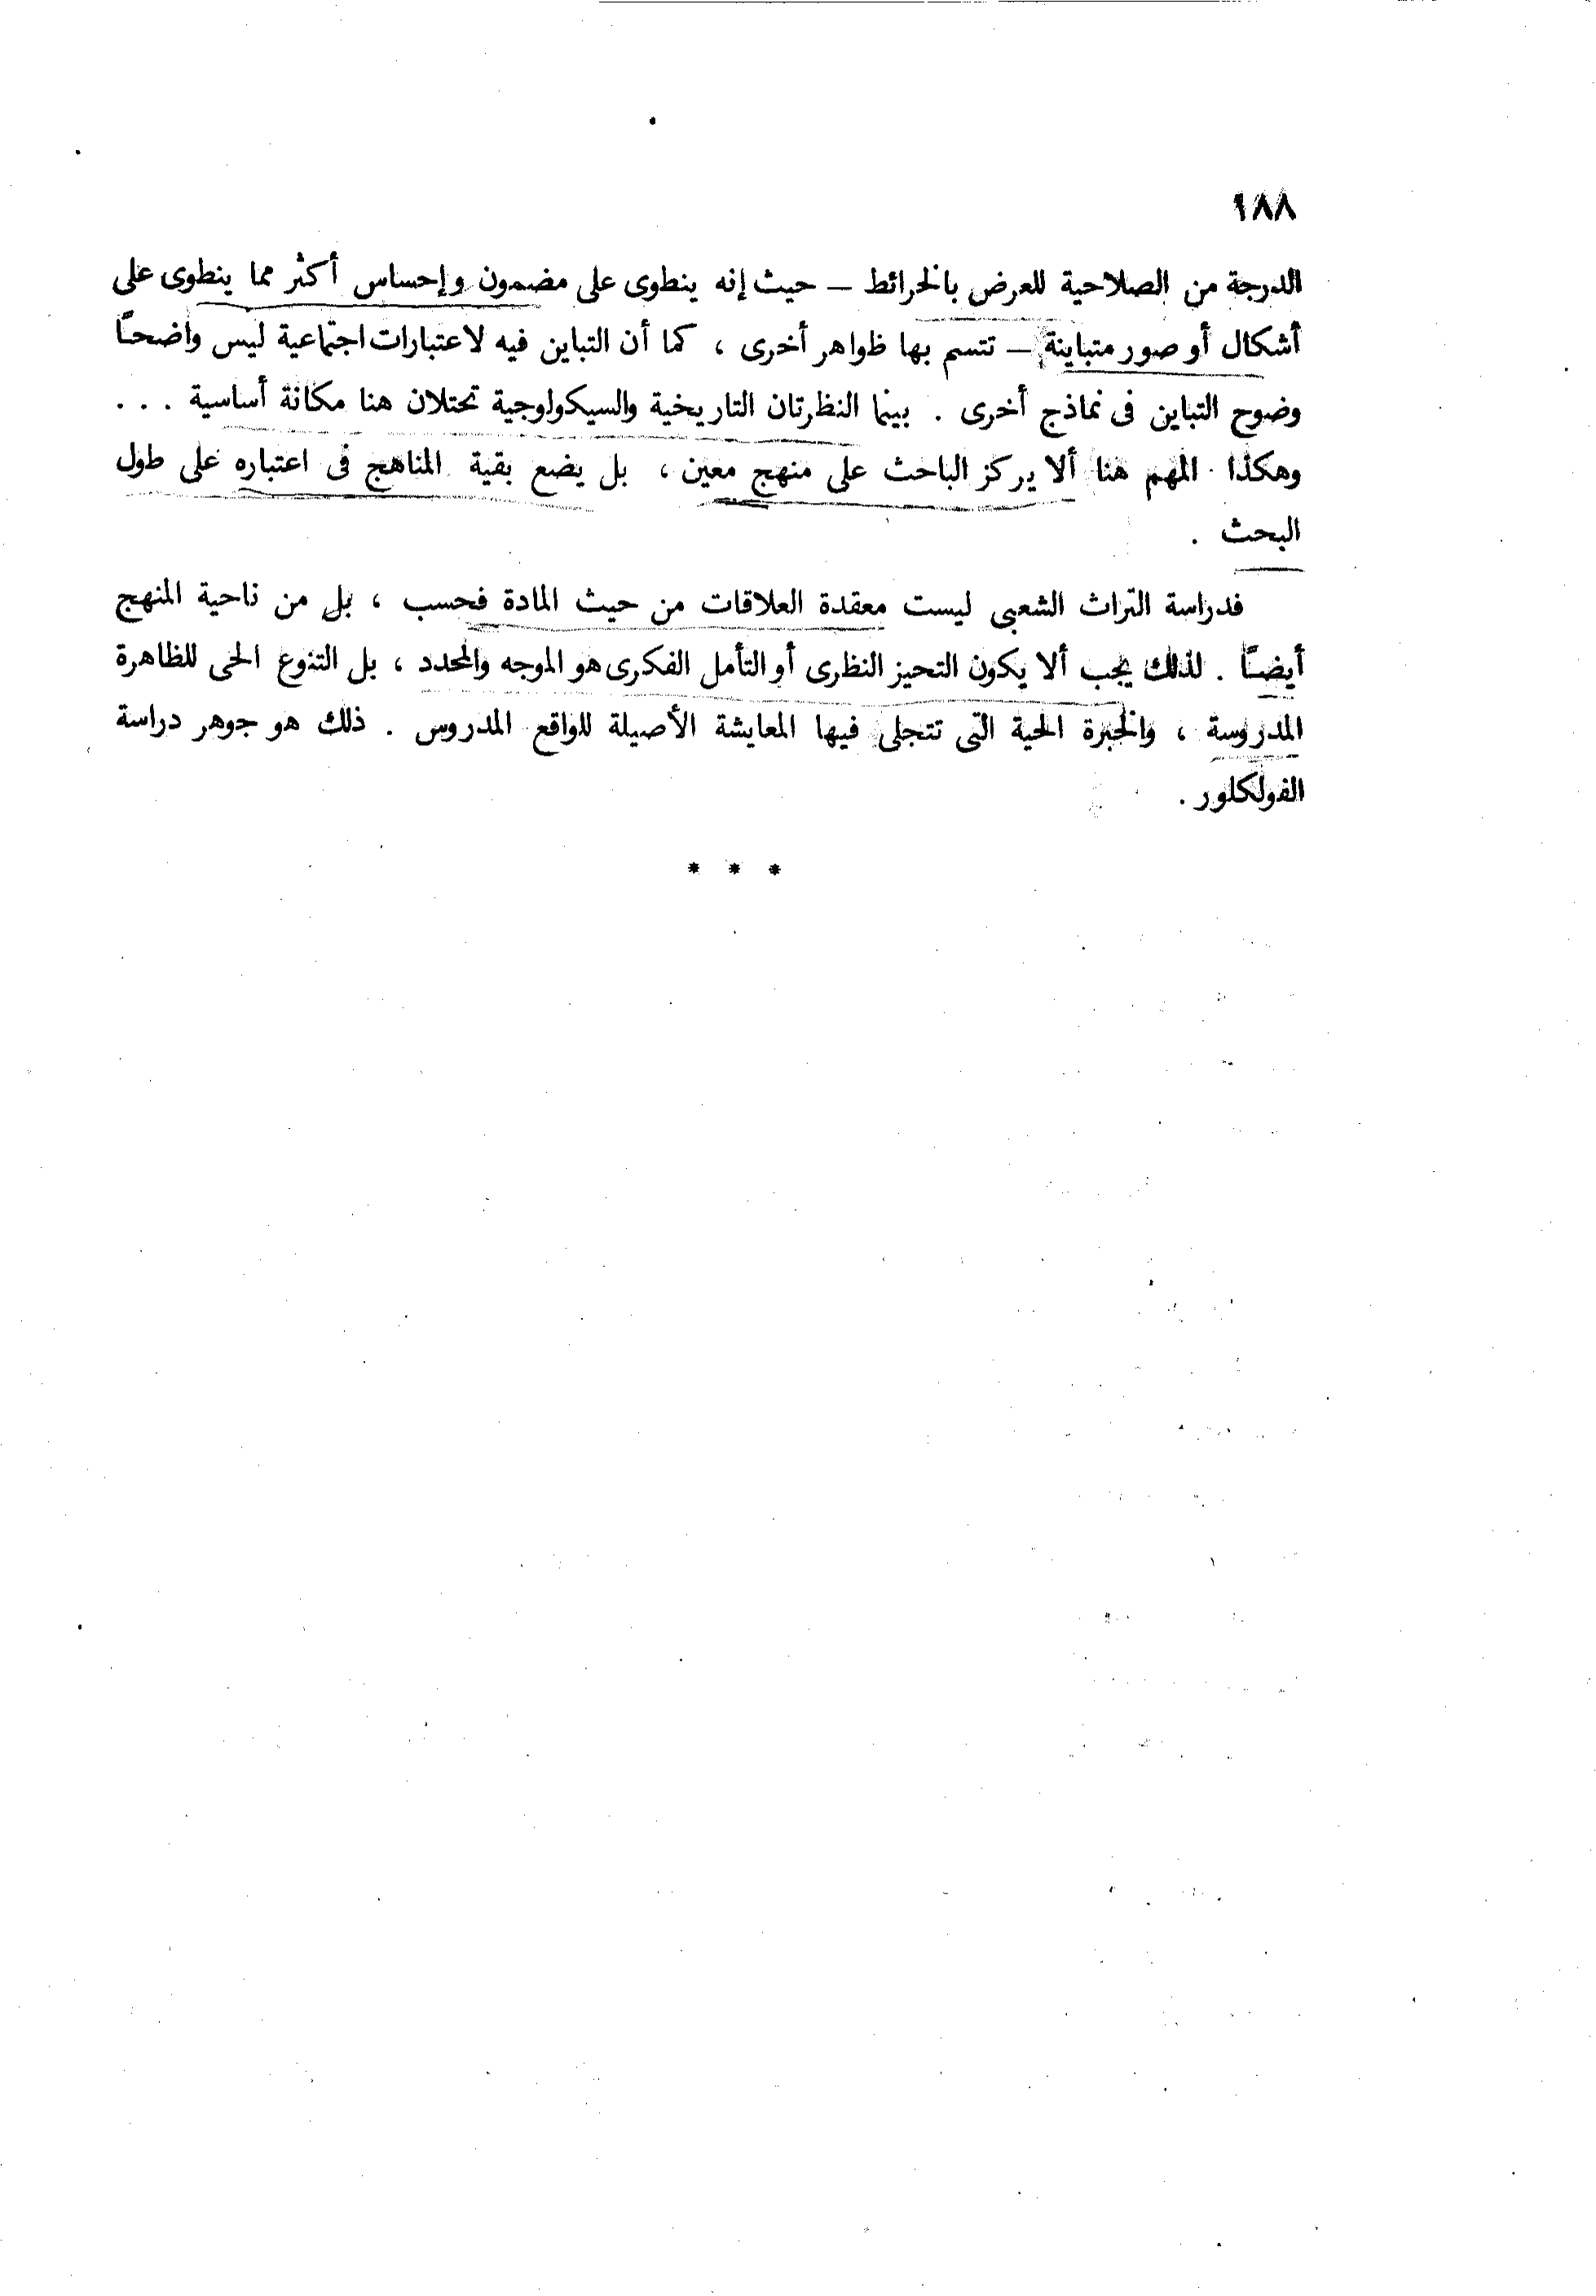 ١٨٨
الدرجة من الصلاحية للعرض بالخرائط – حيث إنه ينطوى على مضمون وإحساس أكثر مما ينطوى على
أشكال أو صور متباينة – تتسم بها ظواهر أخرى ، كما أن التباين فيه لاعتبارات اجتماعية ليس واضحاً
وضوح التباين فى نماذج أخرى . بينما النظرتان التاريخية والسيكولوجية تحتلان هنا مكانة أساسية . . .
وهكذا . المهم هنا ألا يركز الباحث على منهج معين ، بل يضع بقية المناهج فى اعتباره على طول
البحث .
فدراسة التراث الشعبى ليست معقدة العلاقات من حيث المادة فحسب ، بل من ناحية المنهج
أيضاً . لذلك يجب ألا يكون التحيز النظرى أو التأمل الفكرى هو الموجه والمحدد ، بل التنوع الحى للظاهرة
المدروسة ، والخبرة الحية التى تتجلى فيها المعايشة الأصيلة للواقع المدروس . ذلك هو جوهر دراسة
الفولكلور .
* * *